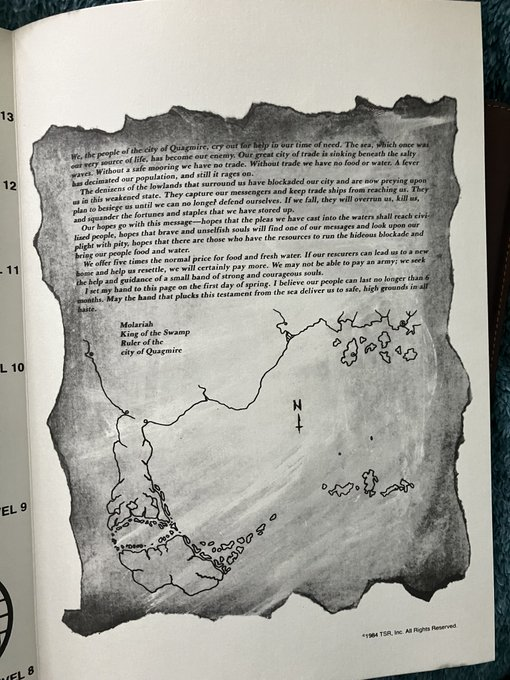 We, the people of the city of Quagmire, cry out for help in our time of need. The sea, which once was
our very source of life, has become our enemy. Our great city of trade is sinking beneath the salty
waves. Without a safe mooring we have no trade. Without trade we have no food or water. A fever
has decimated our population, and still it rages on.
The denizens of the lowlands that surround us have blockaded our city and are now preying upon
us in this weakened state. They capture our messengers and keep trade ships from reaching us. They
plan to besiege us until we can no longer defend ourselves. If we fall, they will overrun us, kill us,
and squander the fortunes and staples that we have stored up.
Our hopes go with this message—hopes that the pleas we have cast into the waters shall reach civi-
lized people, hopes that brave and unselfish souls will find one of our messages and look upon our
plight with pity, hopes that there are those who have the resources to run the hideous blockade and
bring our people food and water.
We offer five times the normal price for food and fresh water. If our rescuers can lead us to a new
home and help us resettle, we will certainly pay more. We may not be able to pay an army; we seek
the help and guidance of a small band of strong and courageous souls.
I set my hand to this page on the first day of spring. I believe our people can last no longer than 6
months. May the hand that plucks this testament from the sea deliver us to safe, high grounds in all
haste.
Molariah
King of the Swamp
Ruler of the
city of Quagmire
N
©1984 TSR, Inc. All Rights Reserved.
13
12
L 11
L 10
EL 9
VEL 8